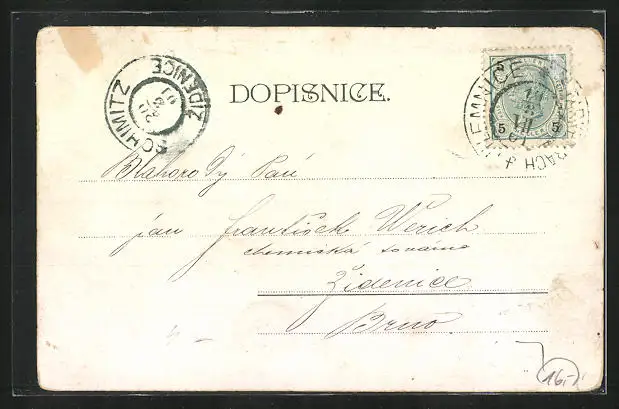 SCHIMITZ ŽIDENICE
DOPISNICE.
5 5
Blahorodý Paní
pan František Werich
chemická továrna
Židenice
Brno.
16.-